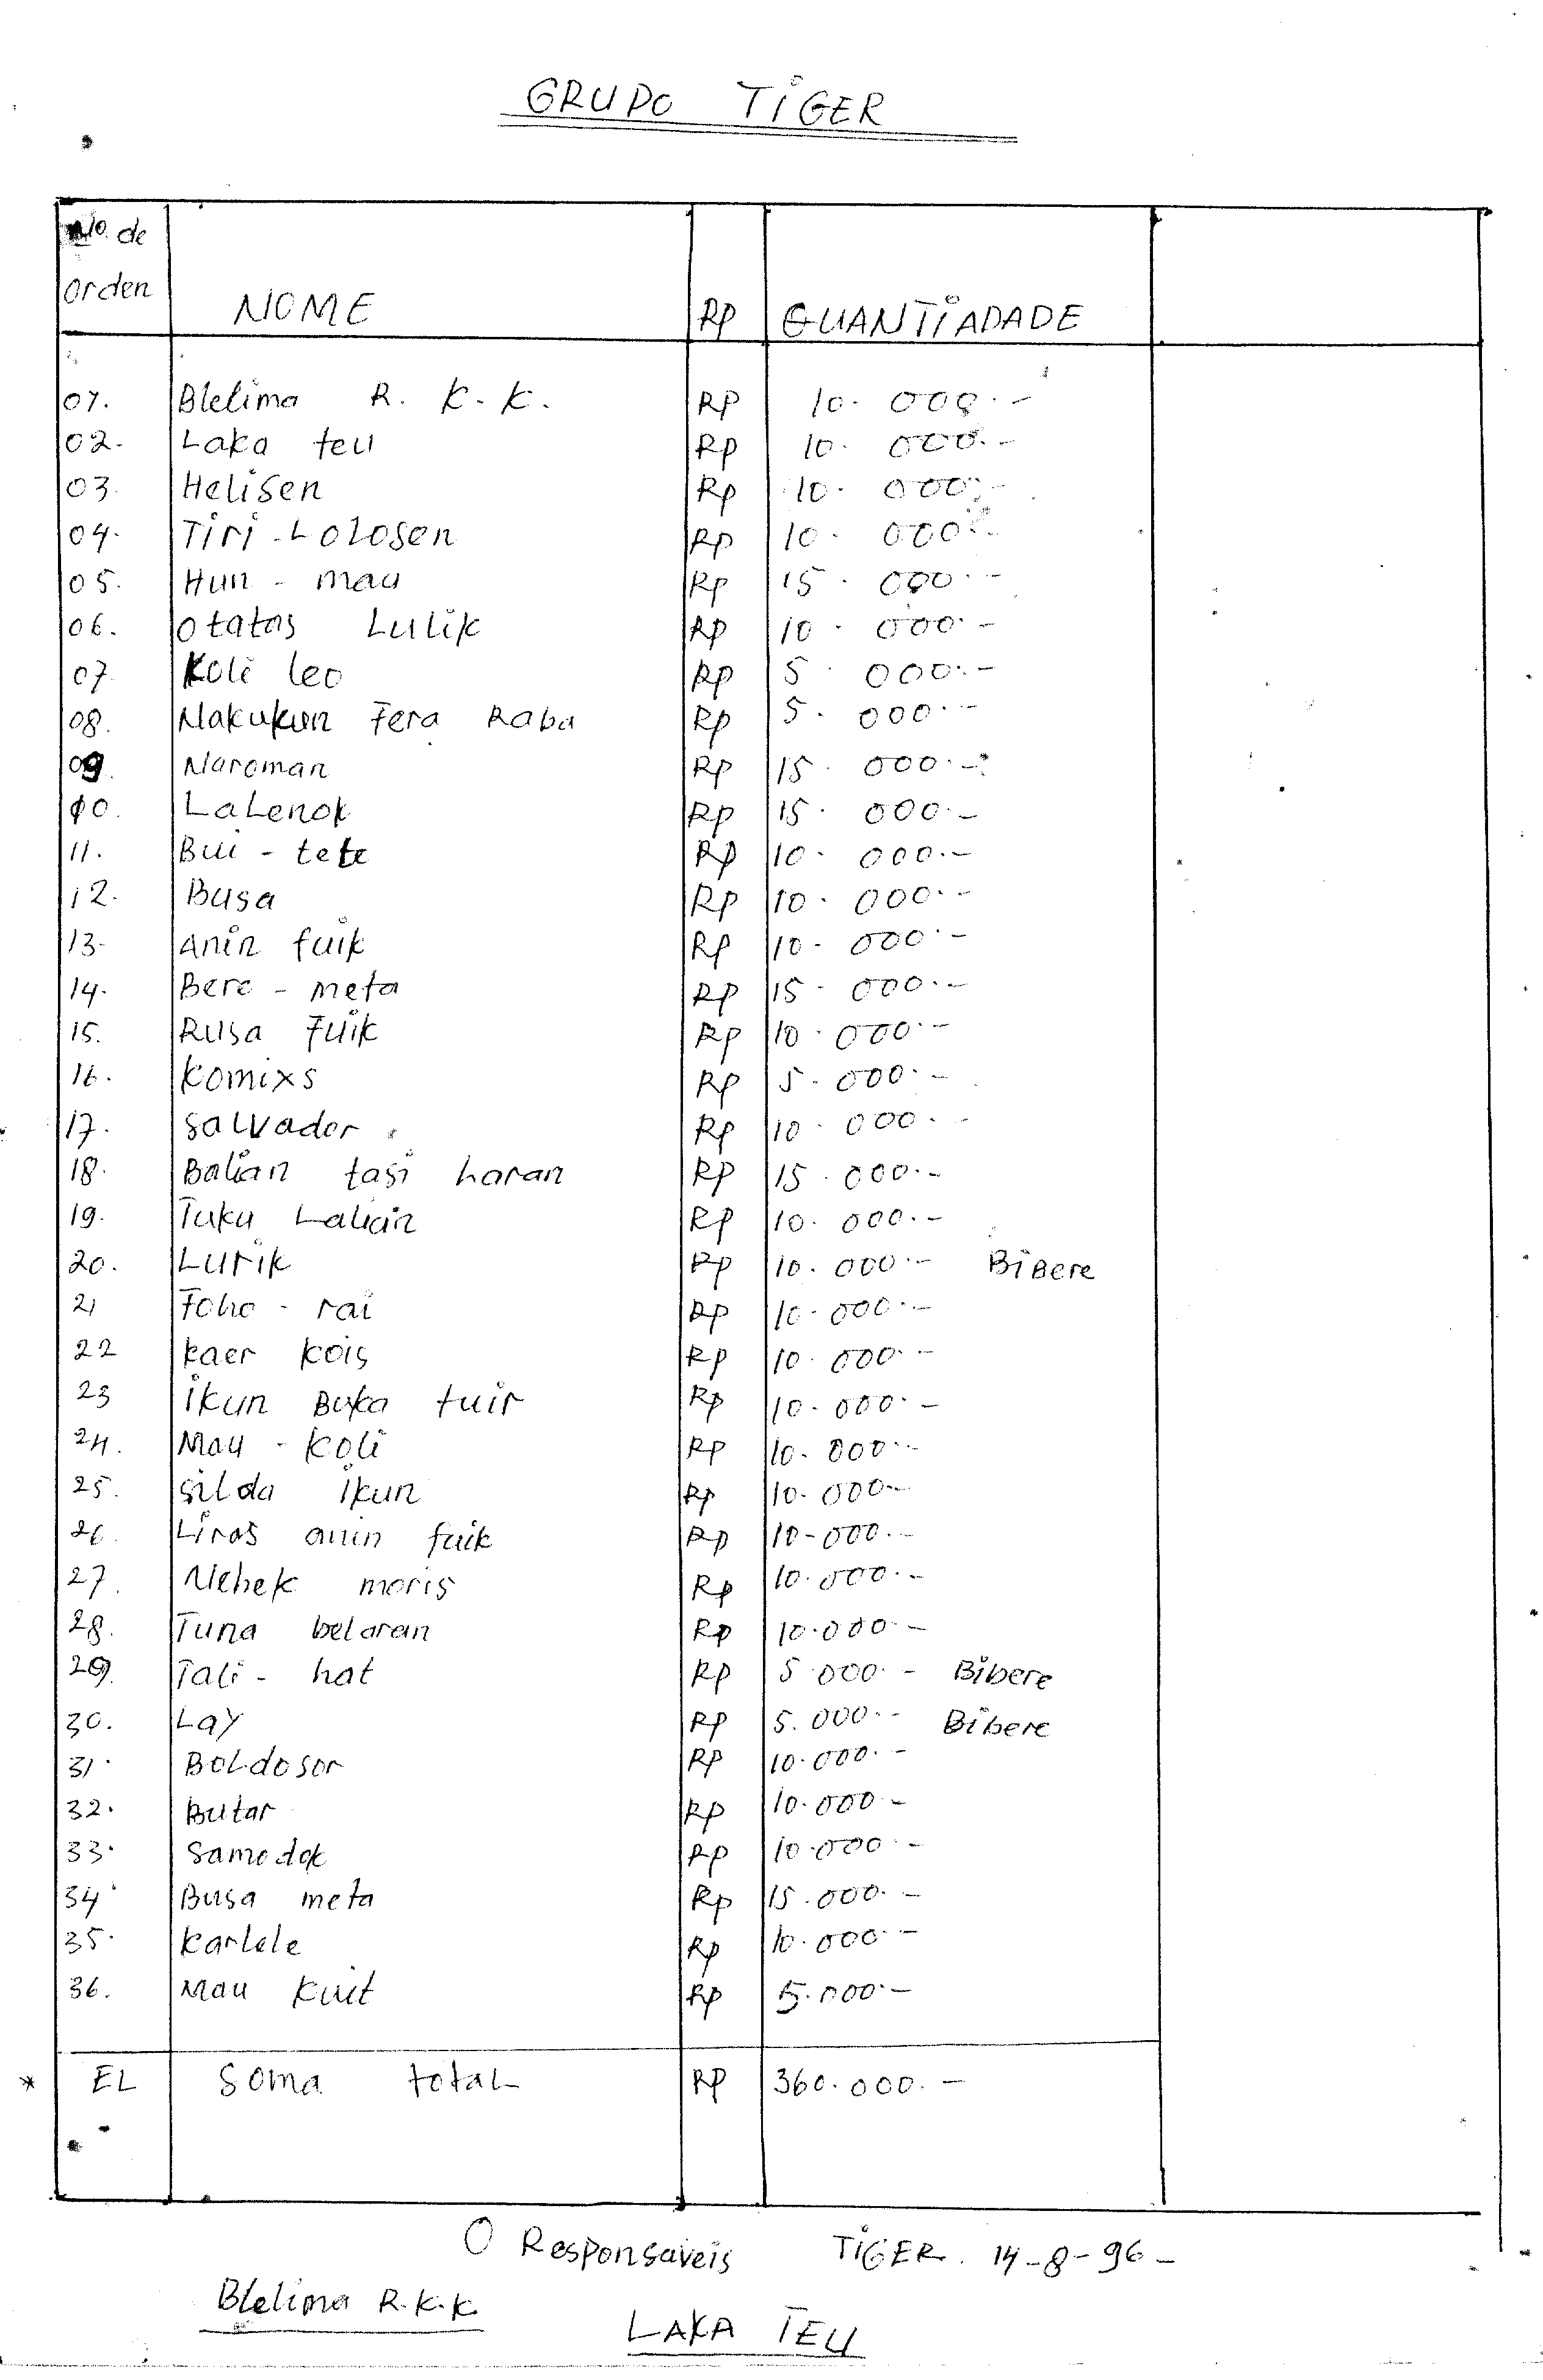 GRUPO TIGER
No. de
orden NOME RP QUANTIADADE
01. Blelima R. K. K. RP 10. 000.-
02. Laka teu RP 10. 000.-
03. Helisen RP 10. 000.-
04. Tiri-Lolosen RP 10. 000.-
05. Hun - mau RP 15. 000.-
06. Otatas Lulik RP 10. 000.-
07. Koli leo RP 5. 000.-
08. Nakukun Fera Raba RP 5. 000.-
09. Naroman RP 15. 000.-
10. LaLenok RP 15. 000.-
11. Bui - tete RP 10. 000.-
12. Busa RP 10. 000.-
13. Anin fuik RP 10. 000.-
14. Bere - meta RP 15. 000.-
15. Rusa Fuik RP 10. 000.-
16. Komixs RP 5. 000.-
17. Salvador RP 10. 000.-
18. Balian tasi haran RP 15. 000.-
19. Tuku Lalian RP 10. 000.-
20. Lurik RP 10. 000.- BiBere
21 Foho - rai RP 10. 000.-
22 Kaer Kois RP 10. 000.-
23 ikun Buka tuir RP 10. 000.-
24. Mau - Koli RP 10. 000.-
25. Silda ikun RP 10. 000.-
26. Liras anin fuik RP 10-000.-
27. Nebek moris RP 10.000.-
28. Tuna belaran RP 10.000.-
29. Tali - hat RP 5 000.- Bibere
30. Lay RP 5.000.- Bibere
31. BoLdosor RP 10.000.-
32. Butar RP 10.000.-
33. Samodok RP 10.000.-
34 Busa meta RP 15.000.-
35. Karlele RP 10.000.-
36. Mau Kuit RP 5.000.-
* EL Soma total RP 360.000.-
O Responsaveis TIGER. 14-8-96-
Blelima R.K.K
LAKA TEU